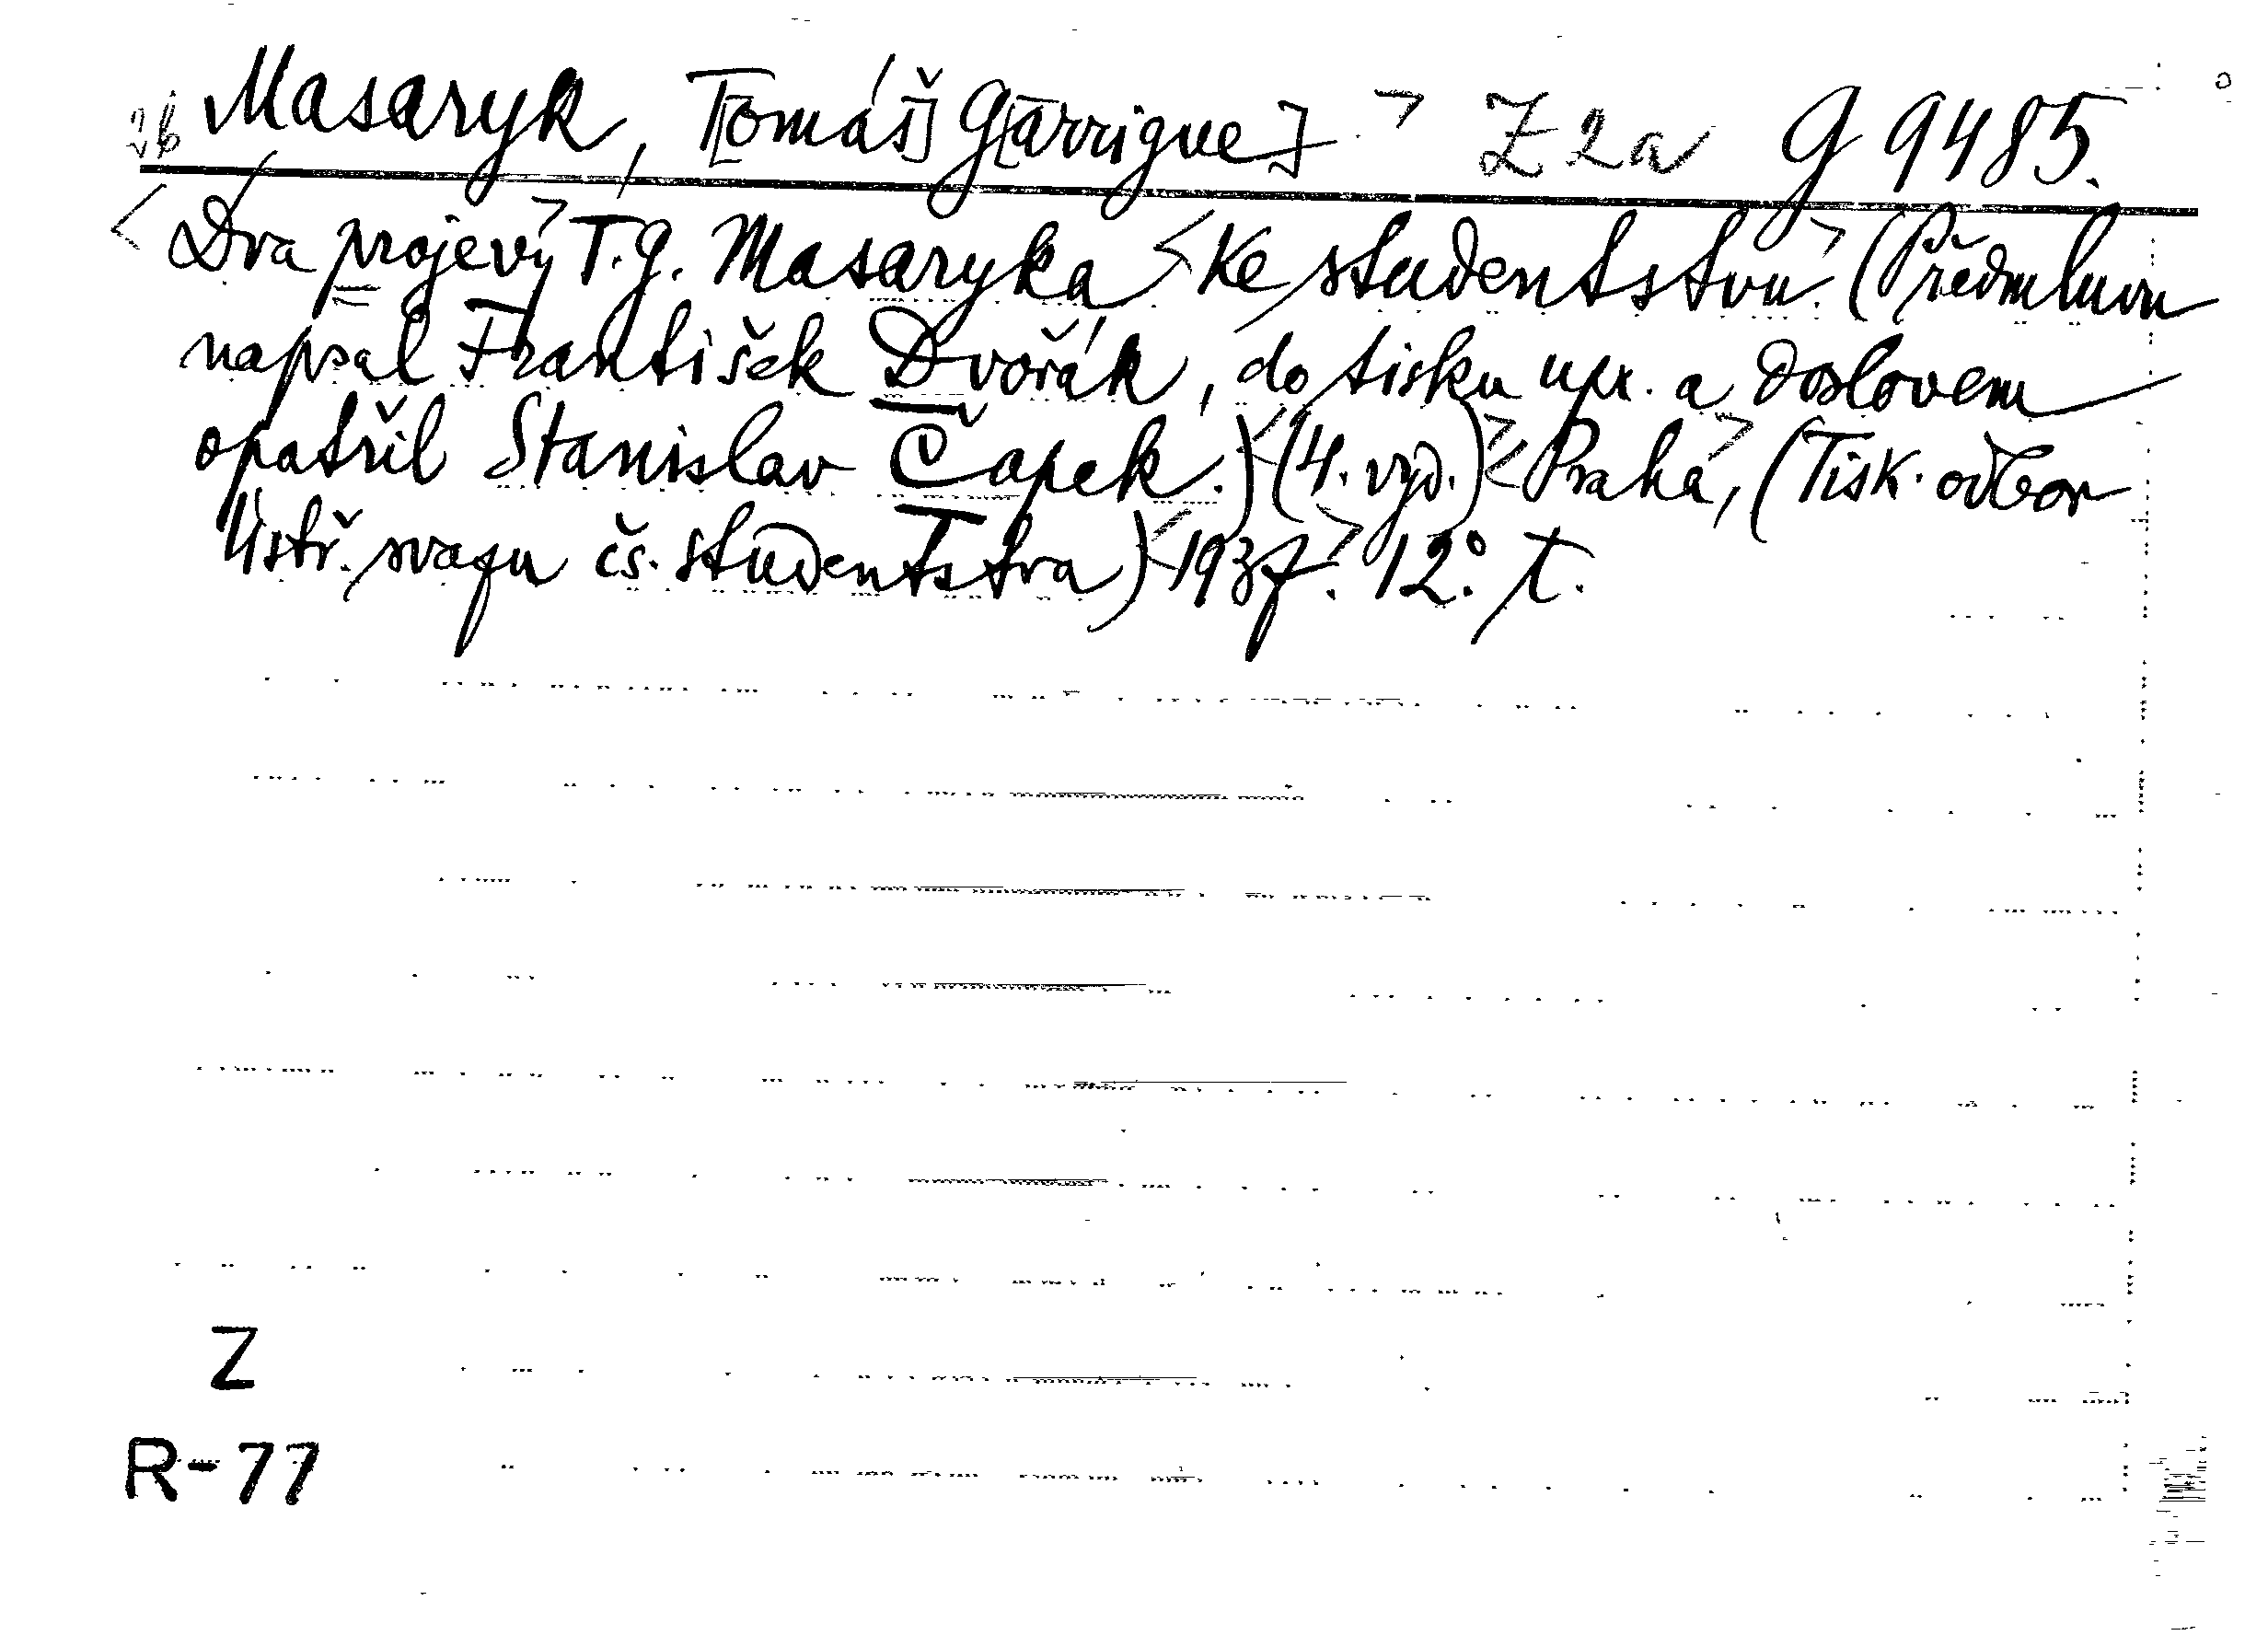 2b Masaryk, T[omáš] G[arrigue] > Z 2a G 9485.
< Dva projevy > T. G. Masaryka < ke studentstvu. > (Předmluvu
napsal František Dvořák, do tisku upr. a doslovem
opatřil Stanislav Čapek.) < (4. vyd.) > < Praha, > (Tisk. odbor
Ústř. svazu čs. studentstva) < 1937. > 12°. T.
Z
R-77